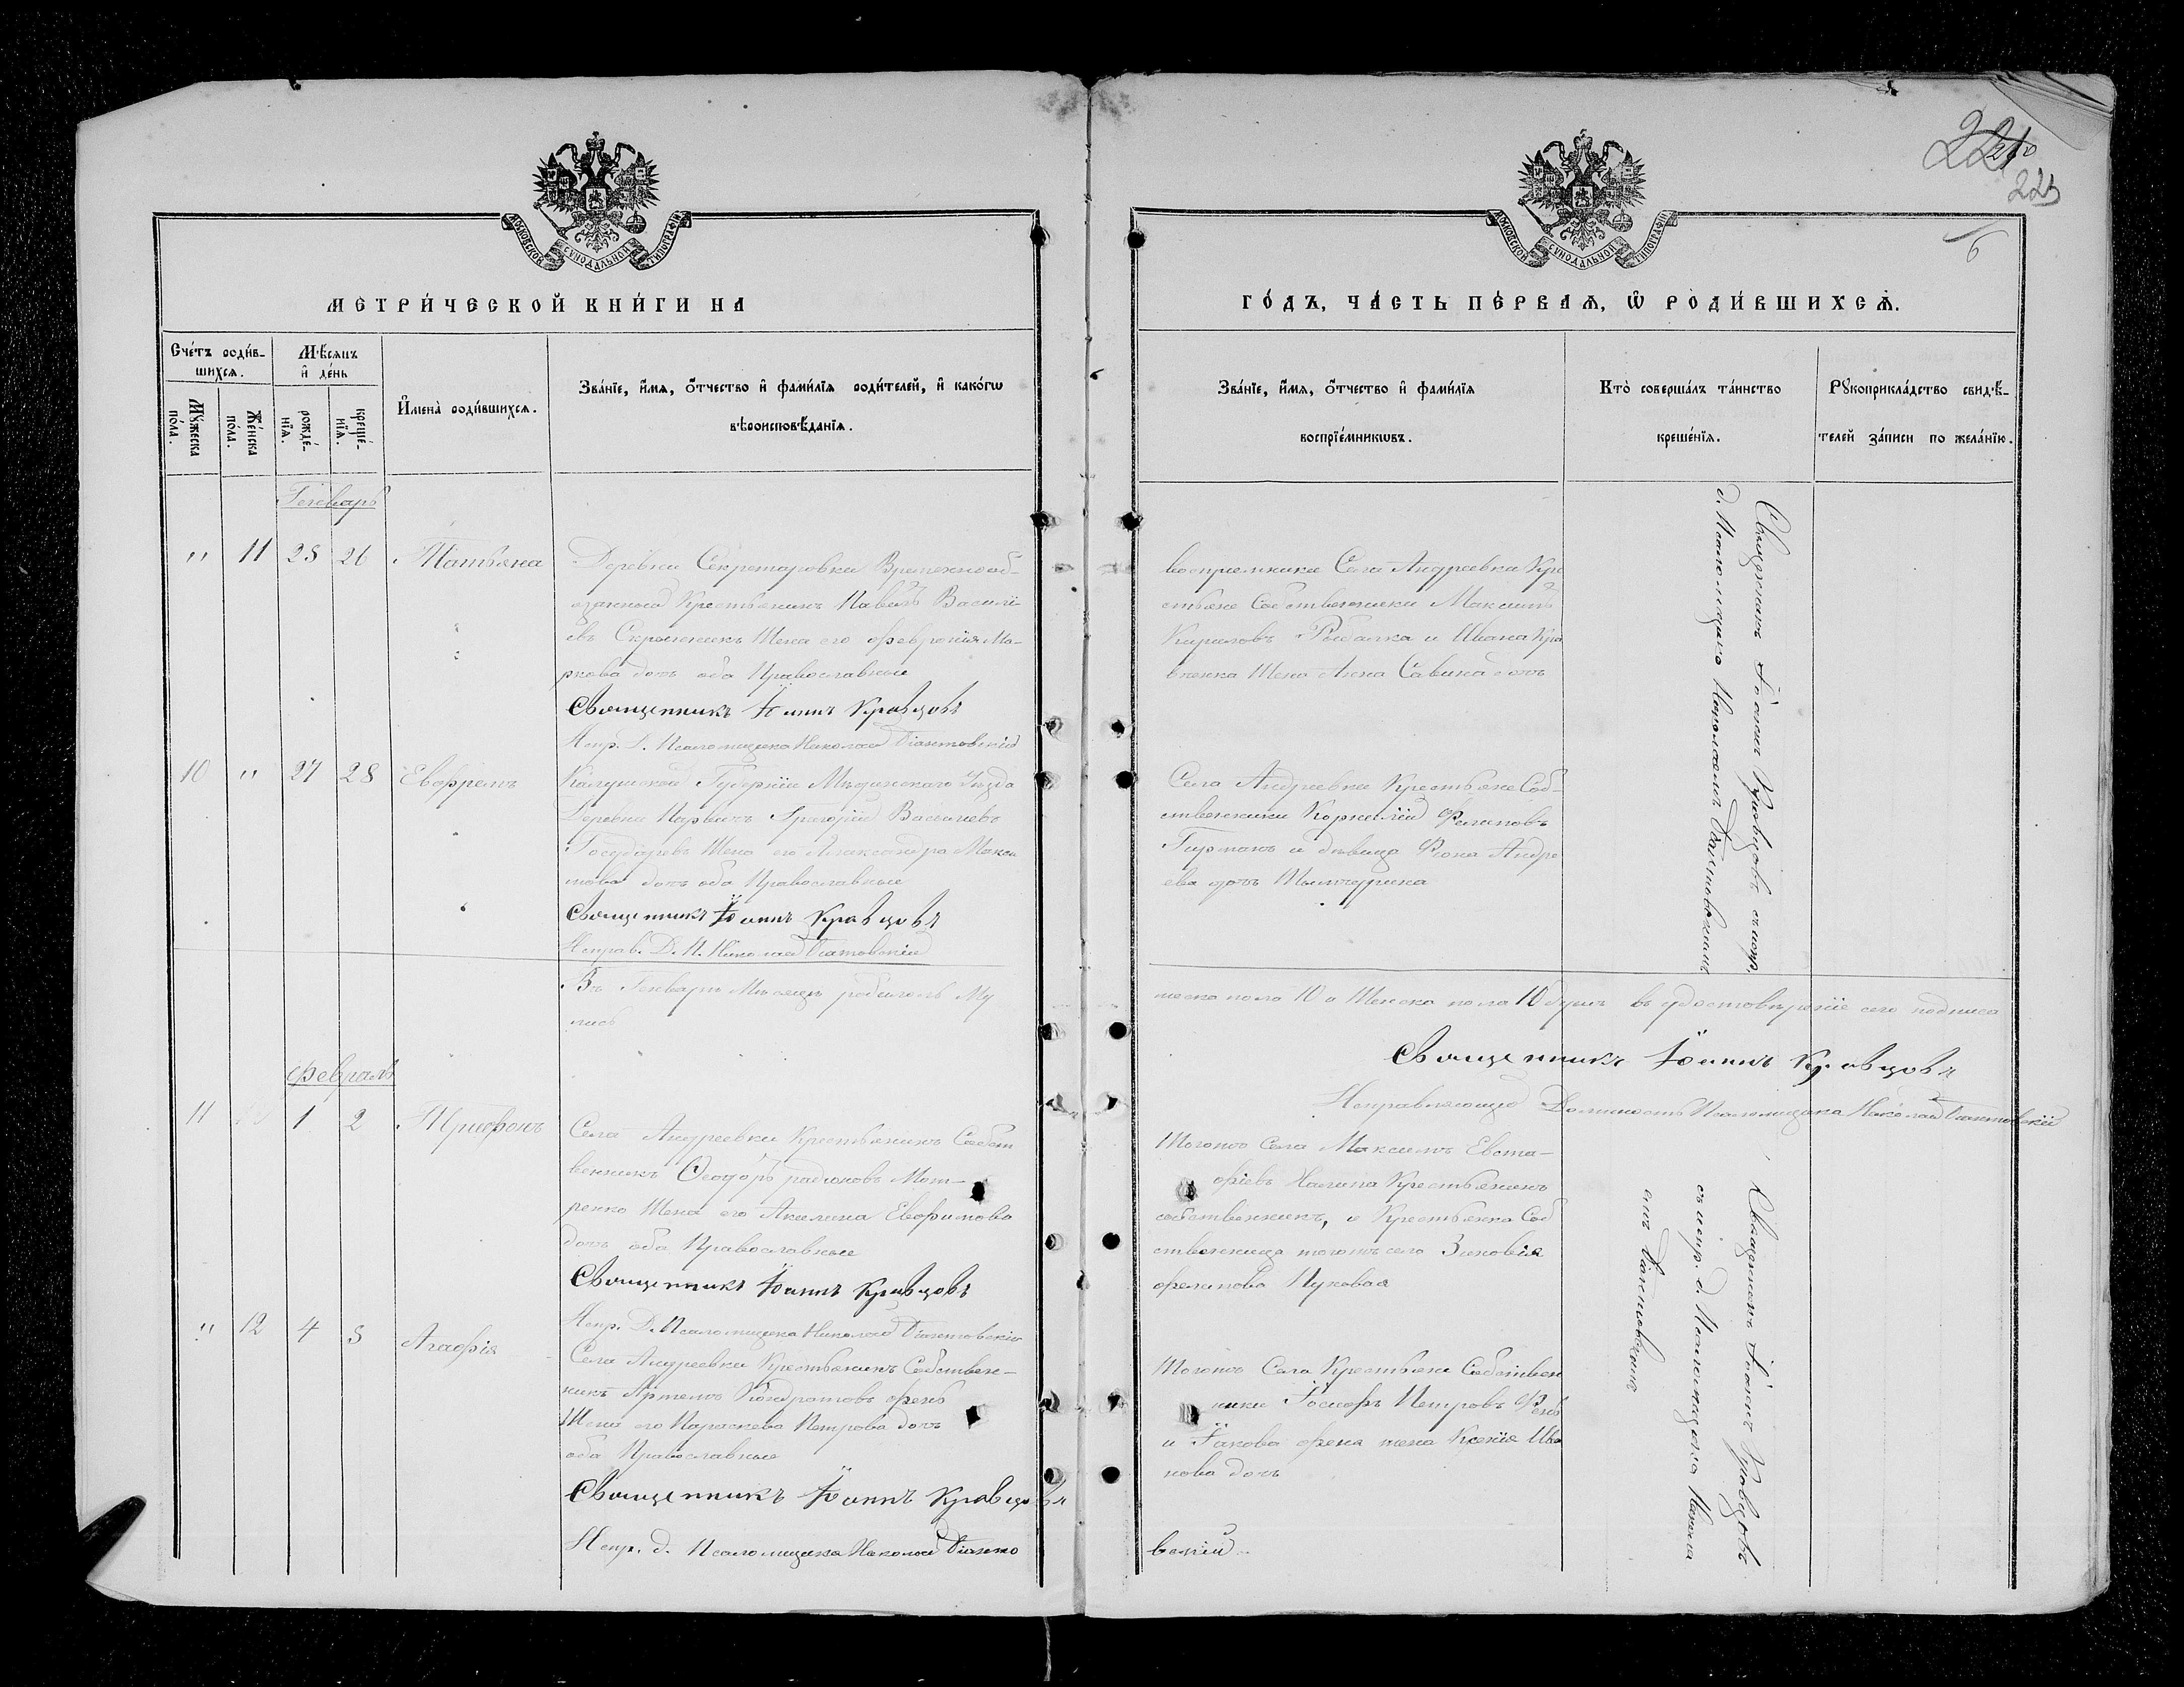 240
223
6
МОСКОВСКОЙ СѴНОДАЛЬНОЙ ТИПОГРАФІИ
МОСКОВСКОЙ СѴНОДАЛЬНОЙ ТИПОГРАФІИ
МЕТРИ́ЧЕСКОЙ КНИ́ГИ НА
ГО́ДЪ, ЧА́СТЬ ПЕ́РВАѦ, Ѡ҆ РОДИ́ВШИХСѦ.
Сче́тъ роди́в-
шихсѧ.
Мꙋ́жеска по́ла.
Же́нска по́ла.
Мѣ́сѧцъ и҆ де́нь
рожде́-нїѧ.
креще́-нїѧ.
И҆мена̀ роди́вшихсѧ.
Зва́нїе, и҆́мѧ, ѻ҆́тчество и҆ фами́лїѧ роди́телей, и҆ како́гѡ
вѣроисповѣ́данїѧ.
Зва́нїе, и҆́мѧ, ѻ҆́тчество и҆ фами́лїѧ
воспрїе́мникѡвъ.
Кто̀ соверша́лъ та́инство
креще́нїѧ.
Рꙋкоприкла́дство свидѣ́-
телей за́писи по жела́нїю.
Генварь
" 11 25 26 Татьяна
Деревни Секретаровки Временнооб-
язанный Крестьянинъ Павелъ Василі-
евъ Жена его Февронія Ма-
ркова дочь оба Православные
Священникъ Іоаннъ Кравцовъ
Испр. Д. Псаломщика Николай
воспріемники Села Андреевки Кре
стьяне Собственники Максимъ
Кириловъ Рыбалка и Ивана Кра
вченка Жена Анна Савина дочь
Священникъ Іоаннъ Кравцовъ съ испр.
д. Псаломщика Николаемъ
10 " 27 28 Ефремъ
Калужской Губерніи Мѣдинскаго Уѣзда
Деревни Григорій Васильевъ
Жена его Александра Макси
мова дочь оба Православные
Священникъ Іоаннъ Кравцовъ
Исправ. Д. П. Николай
Села Андреевки Крестьяне Соб-
ственники Корнелій Филиповъ
и дѣвица Андре
ева дочь
Въ Генварѣ Мѣсяцѣ родилось Му
жеска пола 10 а Женска пола 10 душъ въ удостовѣреніе сего подписа
лись
Священникъ Іоаннъ Кравцовъ
Исправляющій Должность Псаломщика Николай
Февраль
11 1 2 Трифонъ
Села Андреевки Крестьянинъ Собст
венникъ Ѳеодоръ Родіоновъ Мот-
ренко Жена его Акилина Евфимова
дочь оба Православные
Священникъ Іоаннъ Кравцовъ
Испр. Д. Псаломщика Николай
Тогожъ Села Максимъ Евста-
фіевъ Калина Крестьянинъ
собственникъ, и Крестьянка Соб
ственница тогожъ села Зиновія
Священникъ Іоаннъ Кравцовъ
съ испр. д. Псаломщика Никола
емъ
" 12 4 5 Агафія
Села Андреевки Крестьянинъ Собствен-
никъ Артемъ Кондратовъ
Жена его Параскева Петрова дочь
оба Православные
Священникъ Іоаннъ Кравцовъ
Испр. д. Псаломщика Николай
Тогожъ Села Крестьяне Собствен
ники Іосифъ Петровъ
и Іакова жена Ксенія Ива
нова дочь
вскій